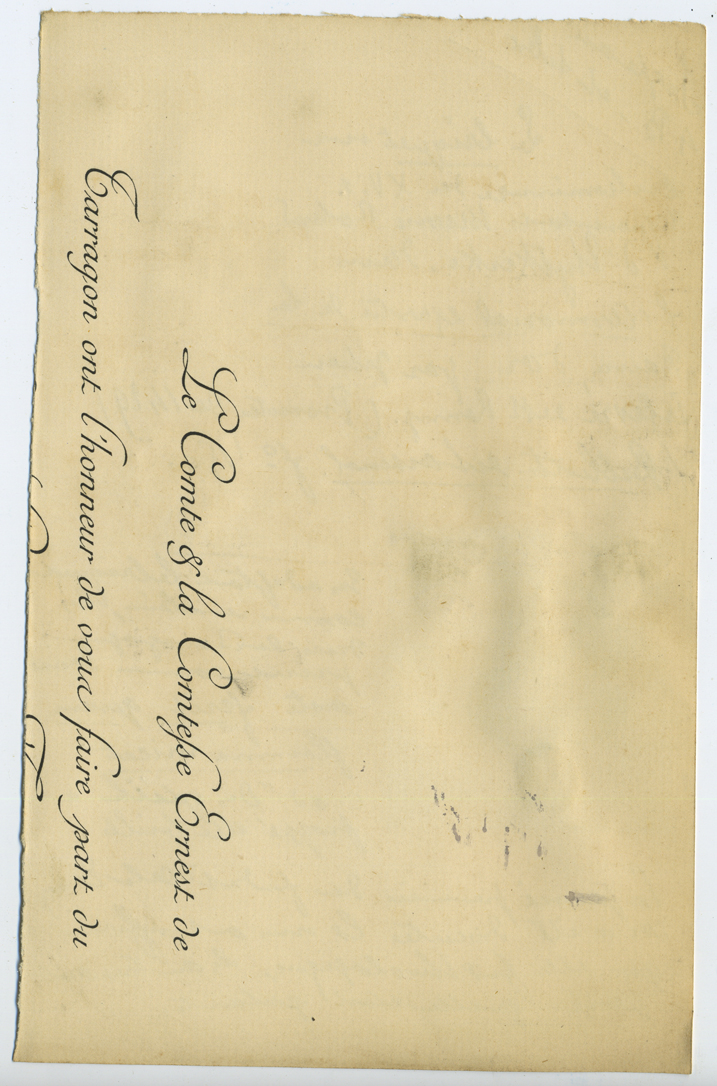 Le Comte & la Comtesse Ernest de
Tarragon ont l'honneur de vous faire part du